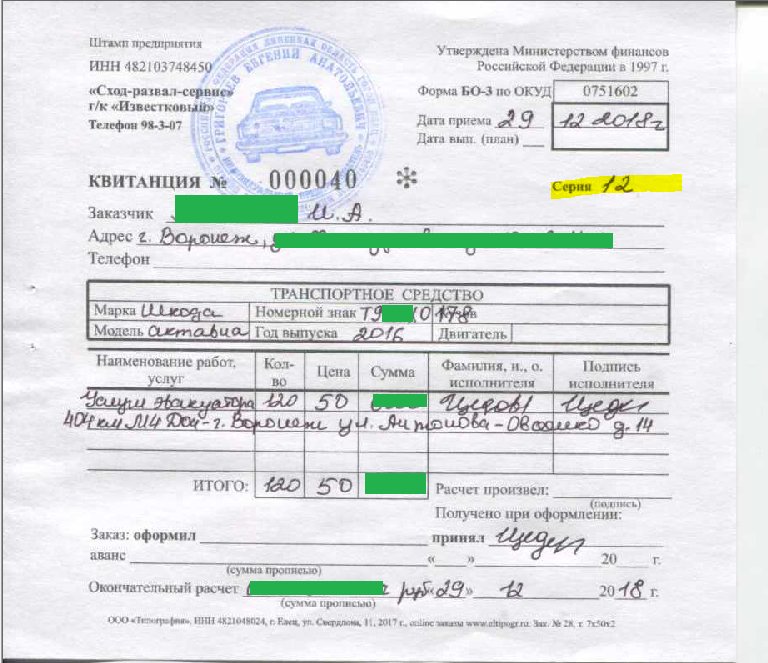 Штамп предприятия
Утверждена Министерством финансов
Российской Федерации в 1997 г.
ИНН 482103748450
«Сход-развал-сервис»
г/к «Известковый»
Телефон 98-3-07
ГРИГОРЬЕВ ЕВГЕНИЙ АНАТОЛЬЕВИЧ
Форма БО-3 по ОКУД 0751602
Дата приема 29 12 2018г
Дата вып. (план)
КВИТАНЦИЯ № 000040
Серия 12
Заказчик И.А.
Адрес г. Воронеж,
Телефон
ТРАНСПОРТНОЕ СРЕДСТВО
Марка Шкода Номерной знак Т9 О 178
Модель актавиа Год выпуска 2016 Двигатель
Наименование работ, услуг Кол-во Цена Сумма Фамилия, и., о. исполнителя Подпись исполнителя
Услуги эвакуатора 120 50
404 км М4 Дон - г. Воронеж ул. Антонова-Овсеенко д. 14
ИТОГО: 120 50 Расчет произвел:
(подпись)
Получено при оформлении:
Заказ: оформил принял
аванс « » 20 г.
(сумма прописью)
Окончательный расчет руб «29» 12 2018 г.
(сумма прописью)
ООО «Типография», ИНН 4821048024, г. Елец, ул. Свердлова, 11, 2017 г., online заказы www.eltipogr.ru. Зак. № 28, т. 7х50х2